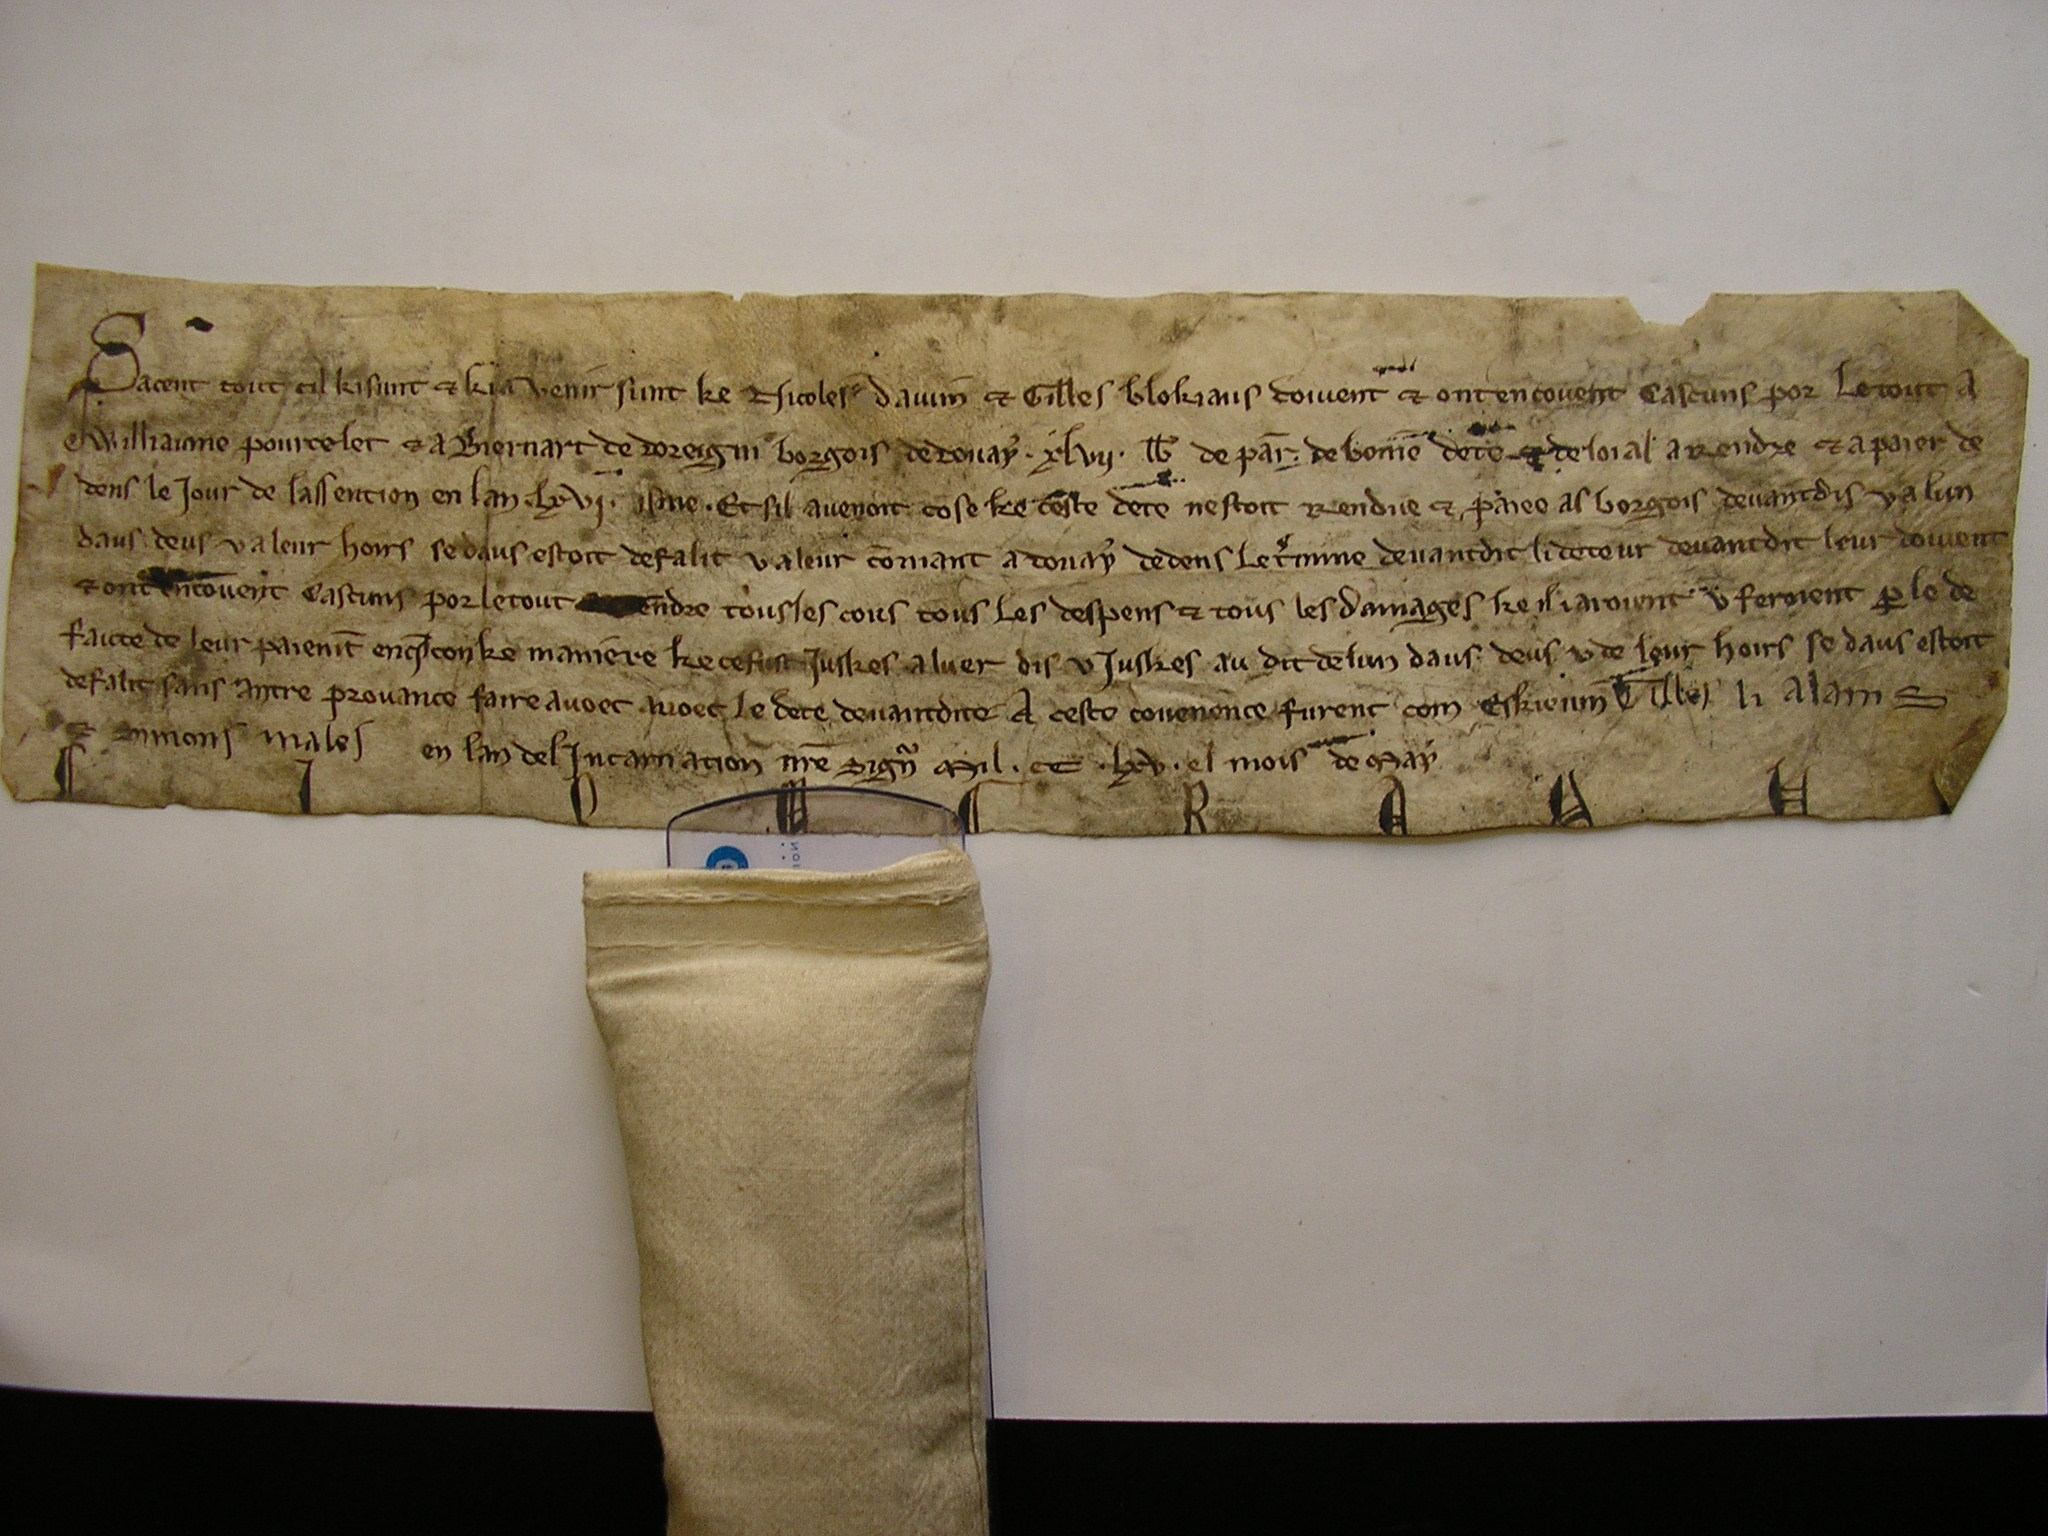 Sacent tout cil ki sunt & ki a venir sunt ke Nicoles dauuin & Gilles blokiaus doiuent & ont encouent Cascuns por Le tout A
Williaume pourcelet & a Biernart de doreigni borgois de douaẏ · xlvij · lb̄ de par̄ · de bonne dete & de loial a Rendre & a paier de
dens le Jour de lassention en lan · lxvj · isme · Et sil auenoit cose ke ceste dete nestoit Rendue & paiee as borgois deuantdis v a lun
daus deus v a leur hoirs se daus estoit defalit v a leur cōmant a douaẏ dedens le t̄mine deuantdit li deteur deuantdit leur doiuent
& ont encouent Cascuns por le tout endre tous les cous tous Les despens & tous les damages ke il i aroient v feroient ꝑ le de
faute de leur paiemt̄ en q̄lconke maniere ke ce fust Juskes a luer dis v Juskes au dit de lun daus deus v de leur hoirs se daus estoit
defalit sans autre prouance faire auoec auoec le dete deuantdite A ceste couenence furent com Eskieuin Gilles li Alain
& males en lan del Incarnation nr̄e Sign̄ Mil · cc · lxv · el mois de Maẏ
C I R O G R A P H